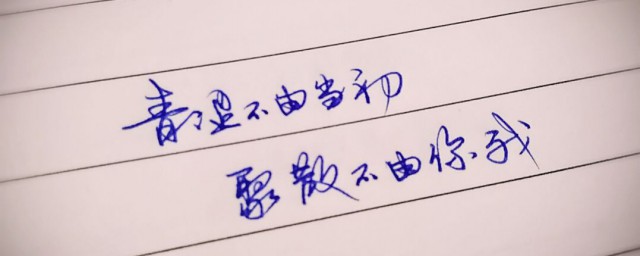 青涩不由当初
聚散不由你我